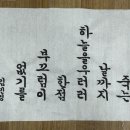 죽는
날까지
하늘을우러러
한점
부끄럼이
없기를